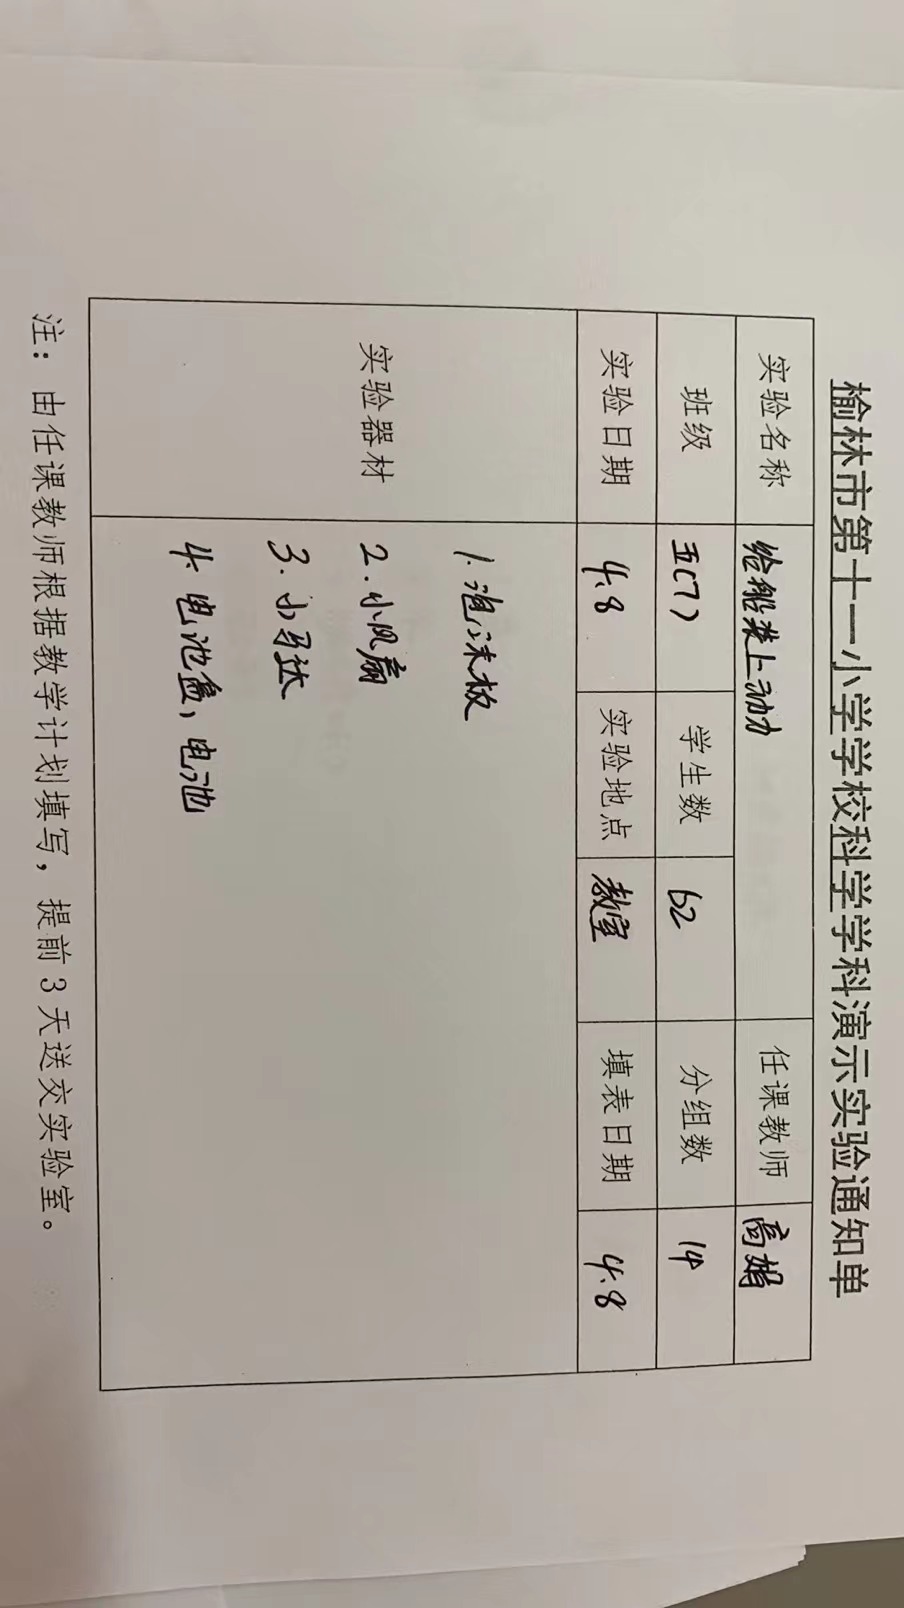 榆林市第十一小学学校科学学科演示实验通知单
实验名称 给船装上动力 任课教师 高娟
班级 五(7) 学生数 62 分组数 14
实验日期 4.8 实验地点 教室 填表日期 4.8
实验器材
1.泡沫板
2.小风扇
3.小马达
4.电池盒,电池
注：由任课教师根据教学计划填写，提前3天送交实验室。